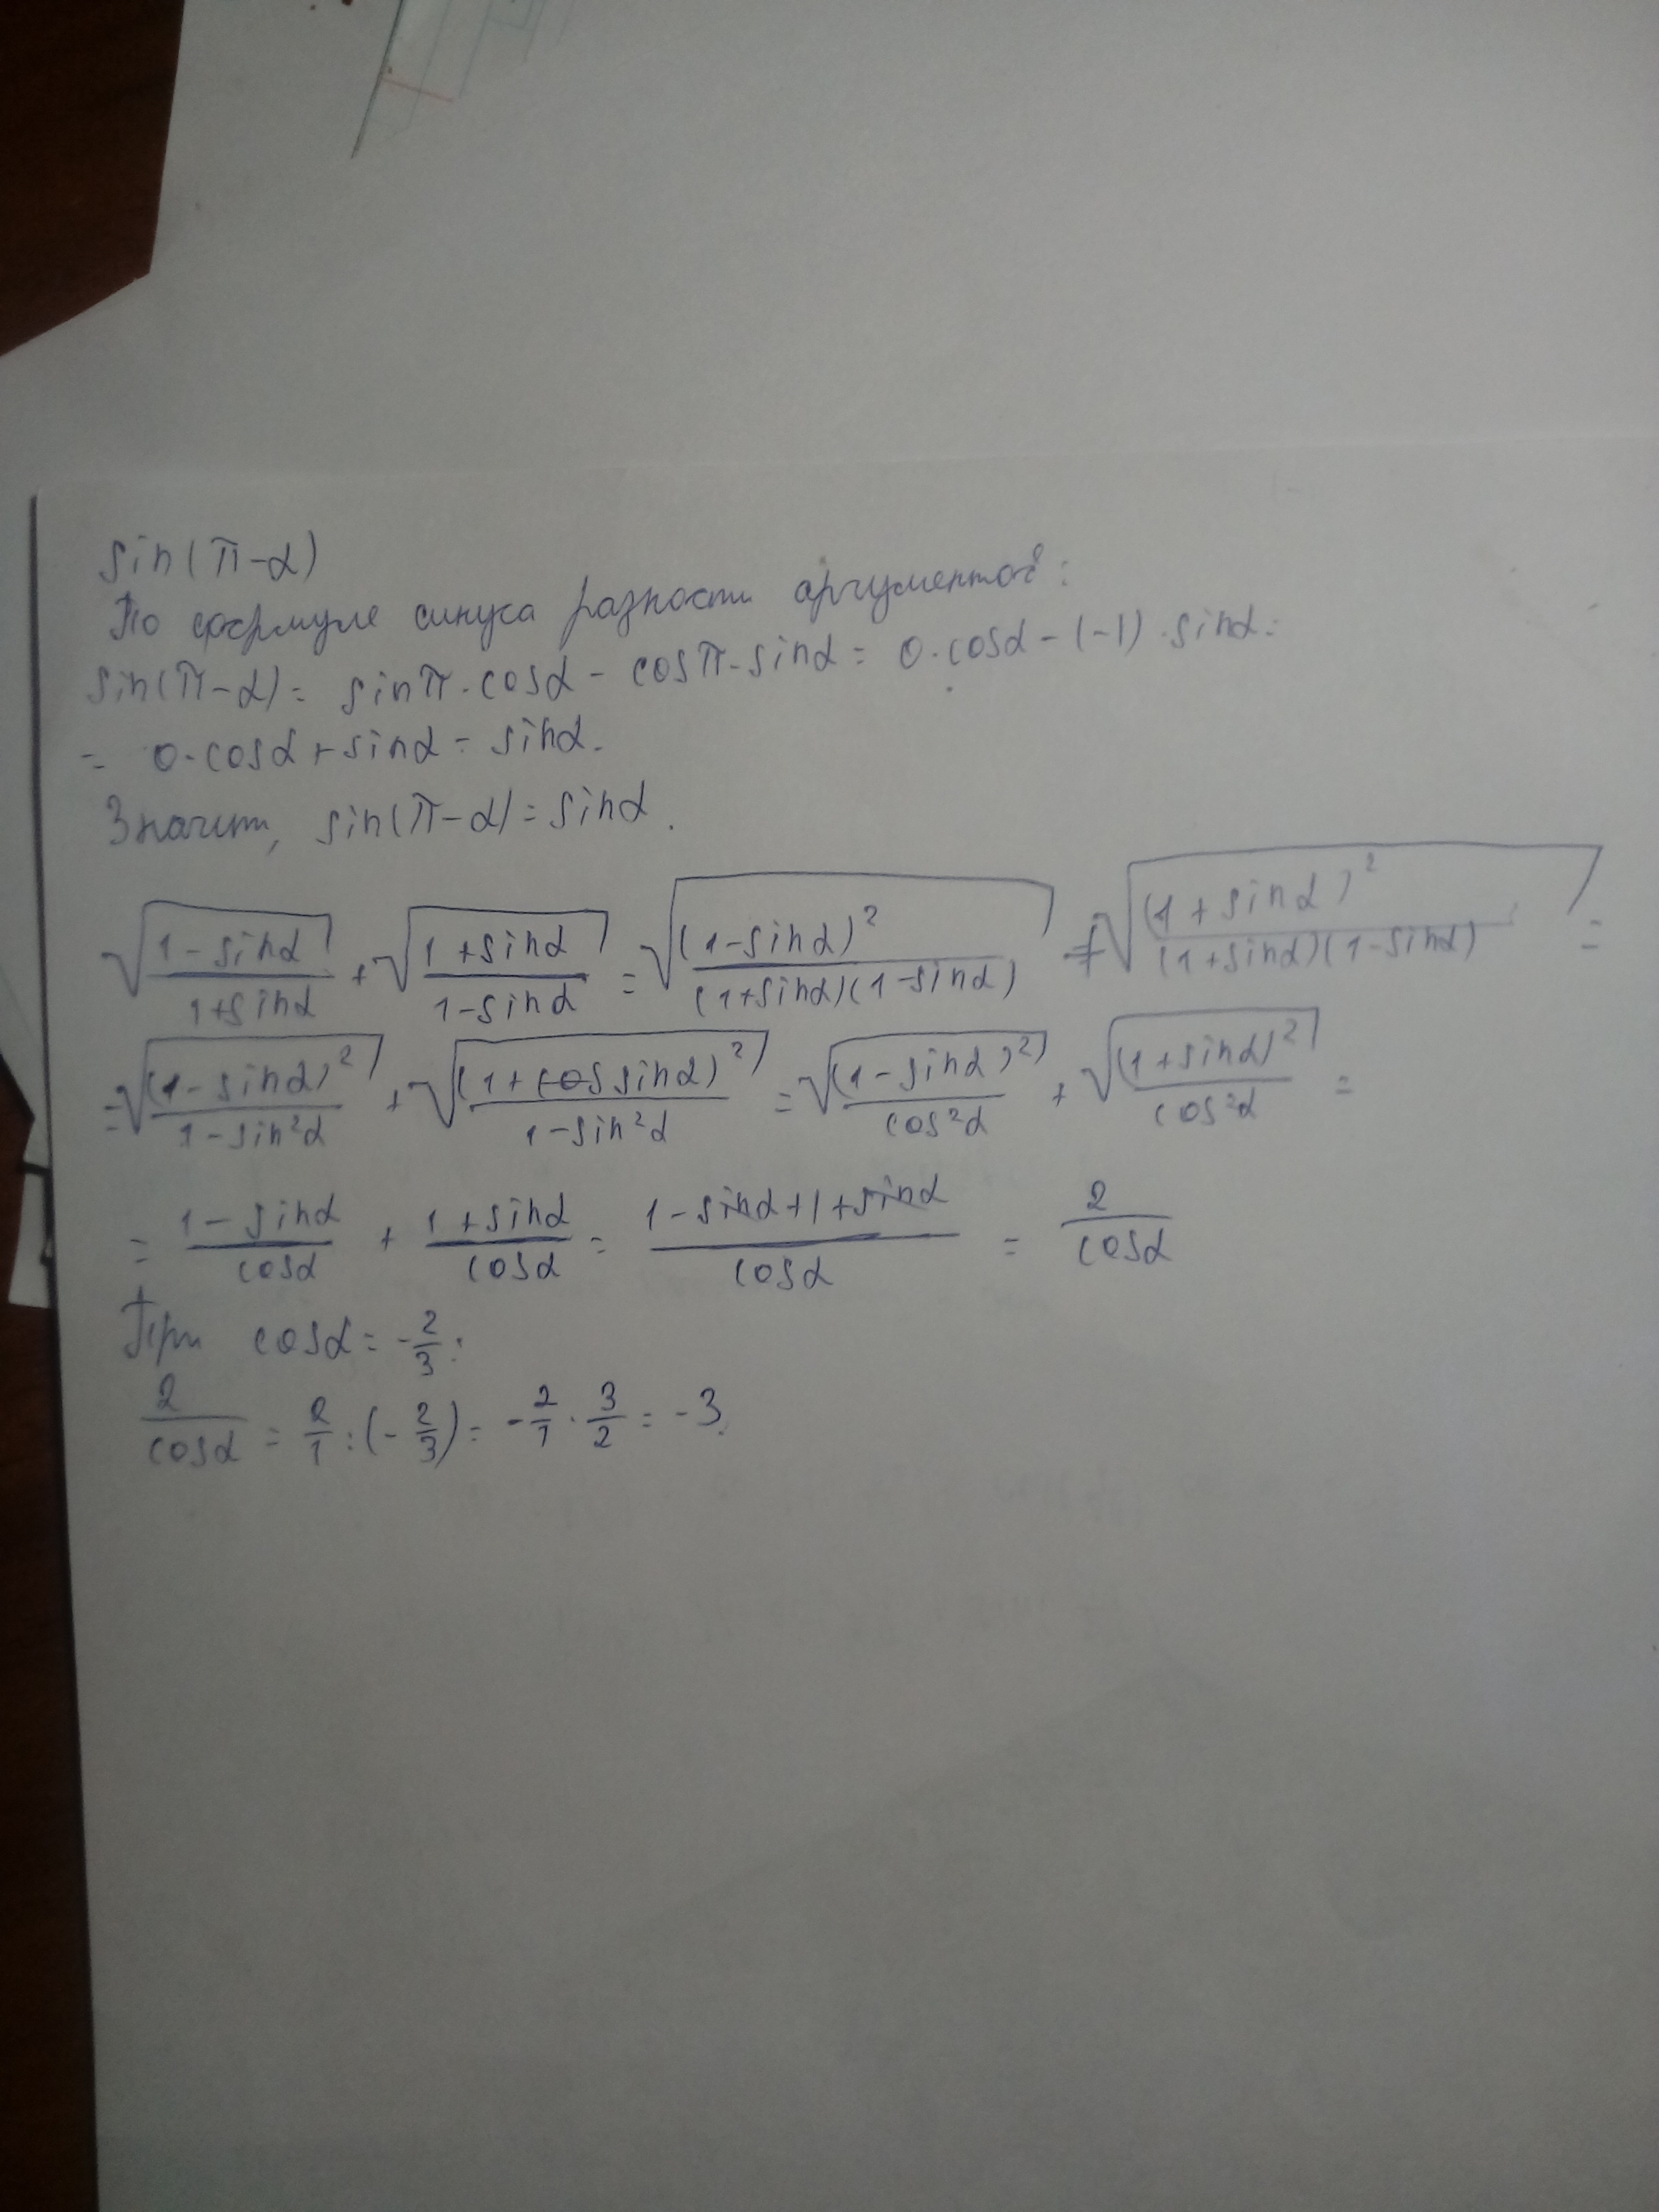 sin(π-α)
По формуле синуса разности аргументов:
sin(π-α) = sinπ·cosα - cosπ·sinα = 0·cosα - (-1)·sinα =
= 0·cosα + sinα = sinα.
Значит, sin(π-α) = sinα.
√((1-sinα)/(1+sinα)) + √((1+sinα)/(1-sinα)) = √((1-sinα)²/((1+sinα)(1-sinα))) + √((1+sinα)²/((1+sinα)(1-sinα))) =
= √((1-sinα)²/(1-sin²α)) + √((1+sinα)²/(1-sin²α)) = √((1-sinα)²/cos²α) + √((1+sinα)²/cos²α) =
= (1-sinα)/cosα + (1+sinα)/cosα = (1-sinα+1+sinα)/cosα = 2/cosα
При cosα = -2/3:
2/cosα = 2/1 : (-2/3) = -2/1 · 3/2 = -3.